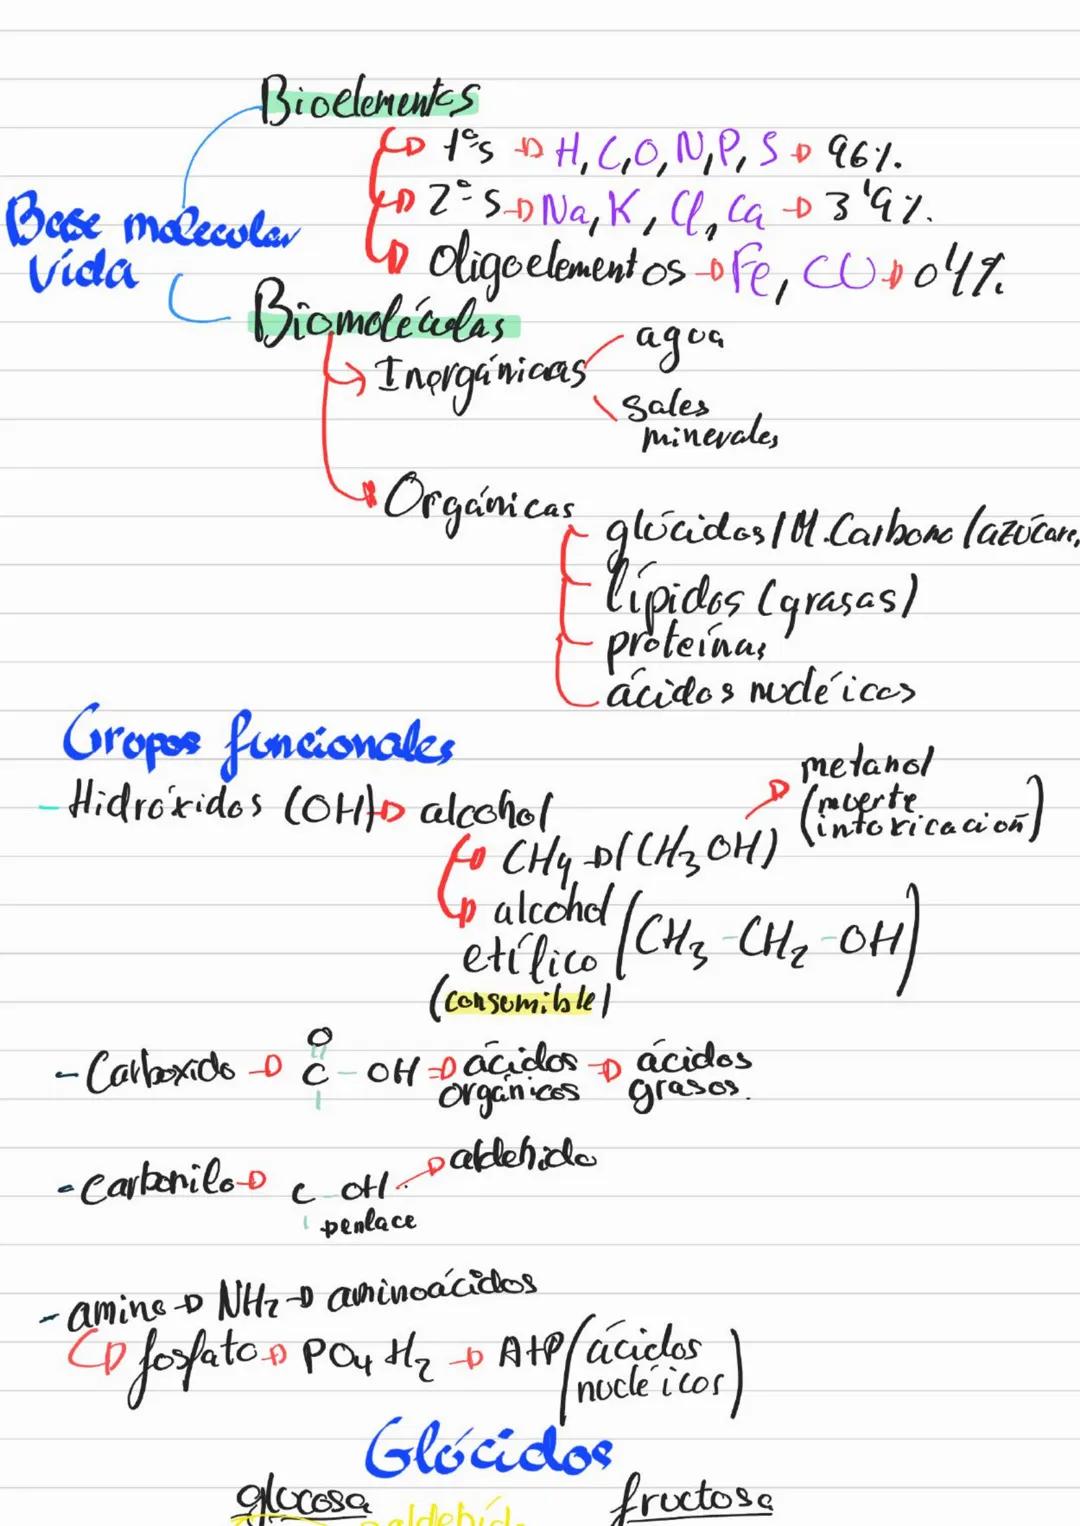 Bioelementos
1ºs → H, C, O, N, P, S → 96%.
2ºs → Na, K, Cl, Ca → 3'9%.
Base molecular
vida
Oligoelementos → Fe, CU → 0'1%.
Biomoléculas
Inorgánicas
agua
sales
minerales
Orgánicas
glúcidos / M. Carbono (azúcares
lípidos (grasas)
proteínas
ácidos nucléicos
Grupos funcionales
- Hidróxidos (OH) → alcohol
metanol
(muerte
intoxicación)
CH4 → (CH3OH)
alcohol
etílico (CH3-CH2-OH)
(consumible)
- Carboxido → O
C - OH → ácidos → ácidos
orgánicos grasos.
- Carbonilo → C OH. → aldehido
enlace
- amino → NH2 → aminoácidos
fosfato → PO4H2 → ATP (ácidos
nucléicos)
Glúcidos
glucosa fructosa